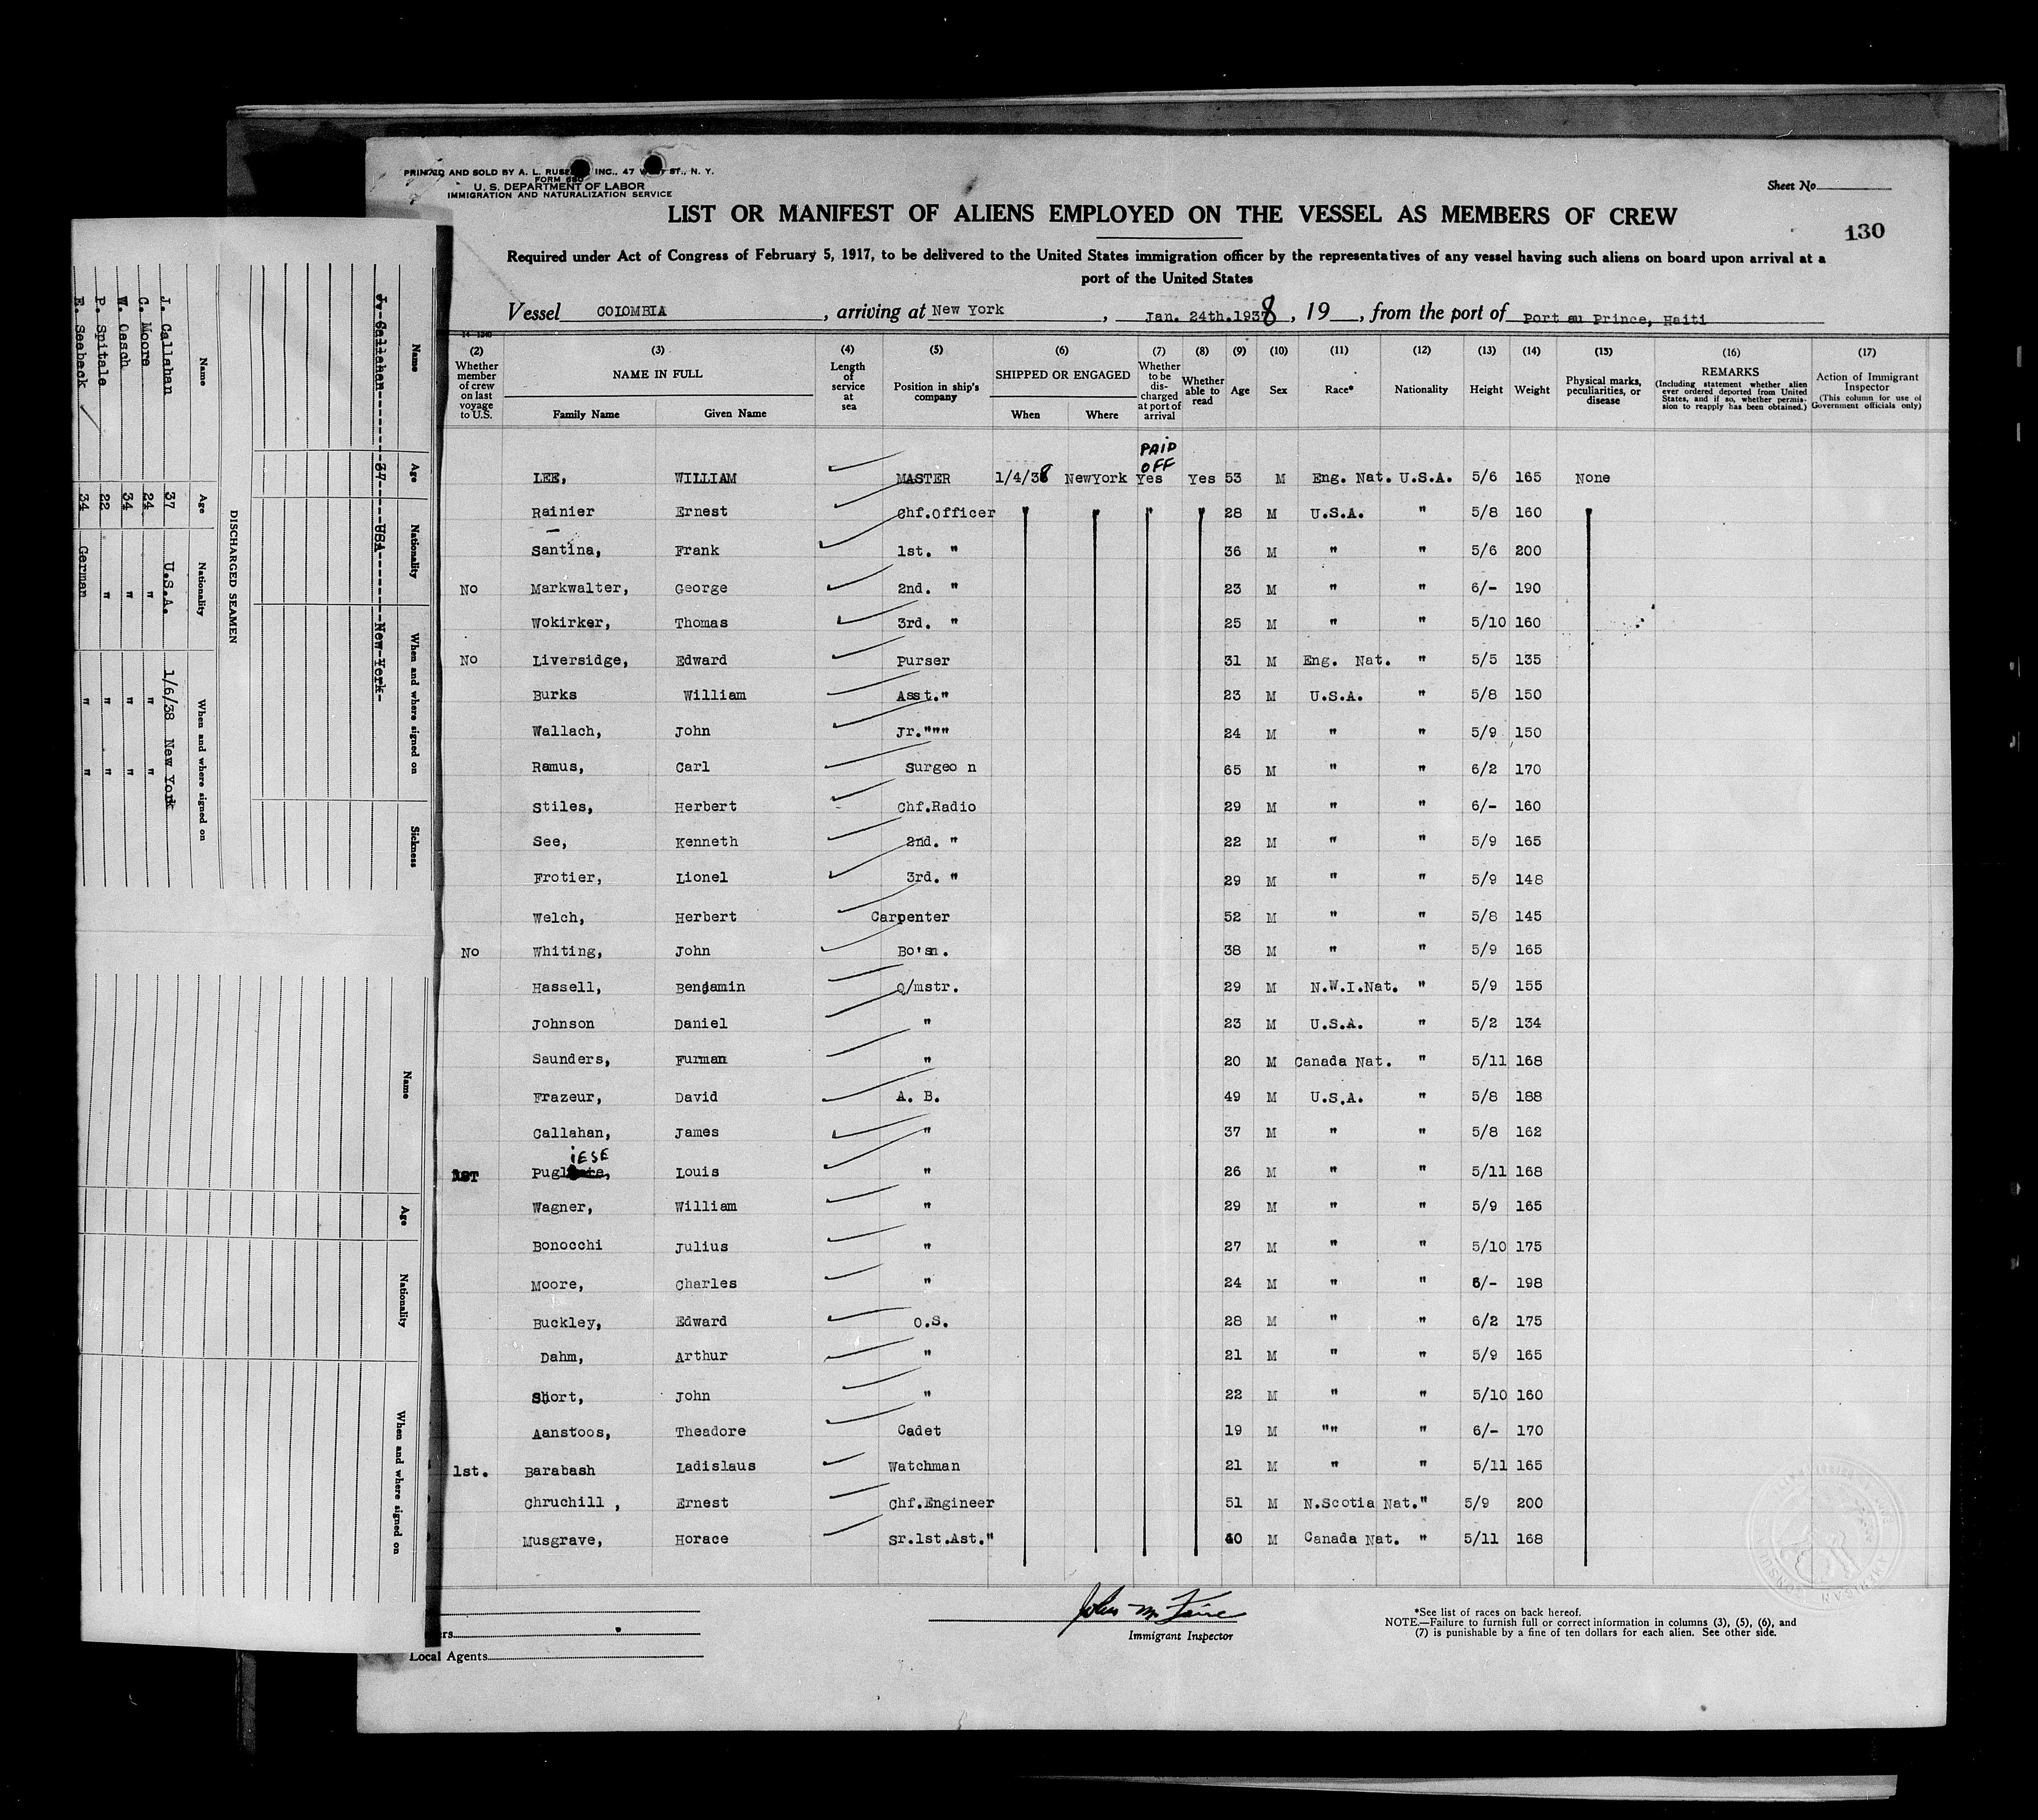 PRINTED AND SOLD BY A. L. INC., 47 ST., N. Y.
FORM 680
U. S. DEPARTMENT OF LABOR
IMMIGRATION AND NATURALIZATION SERVICE
Sheet No
LIST OR MANIFEST OF ALIENS EMPLOYED ON THE VESSEL AS MEMBERS OF CREW
130
Required under Act of Congress of February 5, 1917, to be delivered to the United States immigration officer by the representatives of any vessel having such aliens on board upon arrival at a
port of the United States
Vessel COLOMBIA, arriving at New York, Jan. 24th.1938, 19, from the port of Port au Prince, Haiti
(2) Whether member of crew on last voyage to U.S.
(3) NAME IN FULL Family Name Given Name
(4) Length of service at sea
(5) Position in ship's company
(6) SHIPPED OR ENGAGED When Where
(7) Whether to be discharged at port of arrival
(8) Whether able to read
(9) Age
(10) Sex
(11) Race*
(12) Nationality
(13) Height
(14) Weight
(15) Physical marks, peculiarities, or disease
(16) REMARKS (Including statement whether alien ever ordered deported from United States, and if so, whether permission to reapply has been obtained.)
(17) Action of Immigrant Inspector (This column for use of Government officials only)
PAID OFF
LEE, WILLIAM MASTER 1/4/38 NewYork Yes Yes 53 M Eng. Nat. U.S.A. 5/6 165 None
Rainier Ernest Chf.Officer 28 M U.S.A. " 5/8 160
Santina, Frank 1st. " 36 M " " 5/6 200
No Markwalter, George 2nd. " 23 M " " 6/- 190
Wokirker, Thomas 3rd. " 25 M " " 5/10 160
No Liversidge, Edward Purser 31 M Eng. Nat. " 5/5 135
Burks William Asst." 23 M U.S.A. " 5/8 150
Wallach, John Jr.""" 24 M " " 5/9 150
Ramus, Carl Surgeo n 65 M " " 6/2 170
Stiles, Herbert Chf.Radio 29 M " " 6/- 160
See, Kenneth 2nd. " 22 M " " 5/9 165
Frotier, Lionel 3rd. " 29 M " " 5/9 148
Welch, Herbert Carpenter 52 M " " 5/8 145
No Whiting, John Bo'sn. 38 M " " 5/9 165
Hassell, Benjamin Q/mstr. 29 M N.W.I.Nat. " 5/9 155
Johnson Daniel " 23 M U.S.A. " 5/2 134
Saunders, Furman " 20 M Canada Nat. " 5/11 168
Frazeur, David A. B. 49 M U.S.A. " 5/8 188
Callahan, James " 37 M " " 5/8 162
1ST PuglIESE Louis " 26 M " " 5/11 168
Wagner, William " 29 M " " 5/9 165
Bonocchi Julius " 27 M " " 5/10 175
Moore, Charles " 24 M " " 6/- 198
Buckley, Edward O.S. 28 M " " 6/2 175
Dahm, Arthur " 21 M " " 5/9 165
Short, John " 22 M " " 5/10 160
Aanstoos, Theadore Cadet 19 M "" " 6/- 170
1st. Barabash Ladislaus Watchman 21 M " " 5/11 165
Chruchill , Ernest Chf.Engineer 51 M N.Scotia Nat." 5/9 200
Musgrave, Horace Sr.1st.Ast." 40 M Canada Nat. " 5/11 168
Immigrant Inspector
Local Agents
*See list of races on back hereof.
NOTE.—Failure to furnish full or correct information in columns (3), (5), (6), and
(7) is punishable by a fine of ten dollars for each alien. See other side.
Name Age Nationality When and where signed on Sickness
J. Callahan 37 USA New York
DISCHARGED SEAMEN
Name Age Nationality When and where signed on
J. Callahan 37 U.S.A. 1/6/38 New York
C. Moore 24 " " "
W. Oasch 34 " " "
P. Spitale 22 " " "
E. Seeback 34 German " "
Name Age Nationality When and where signed on